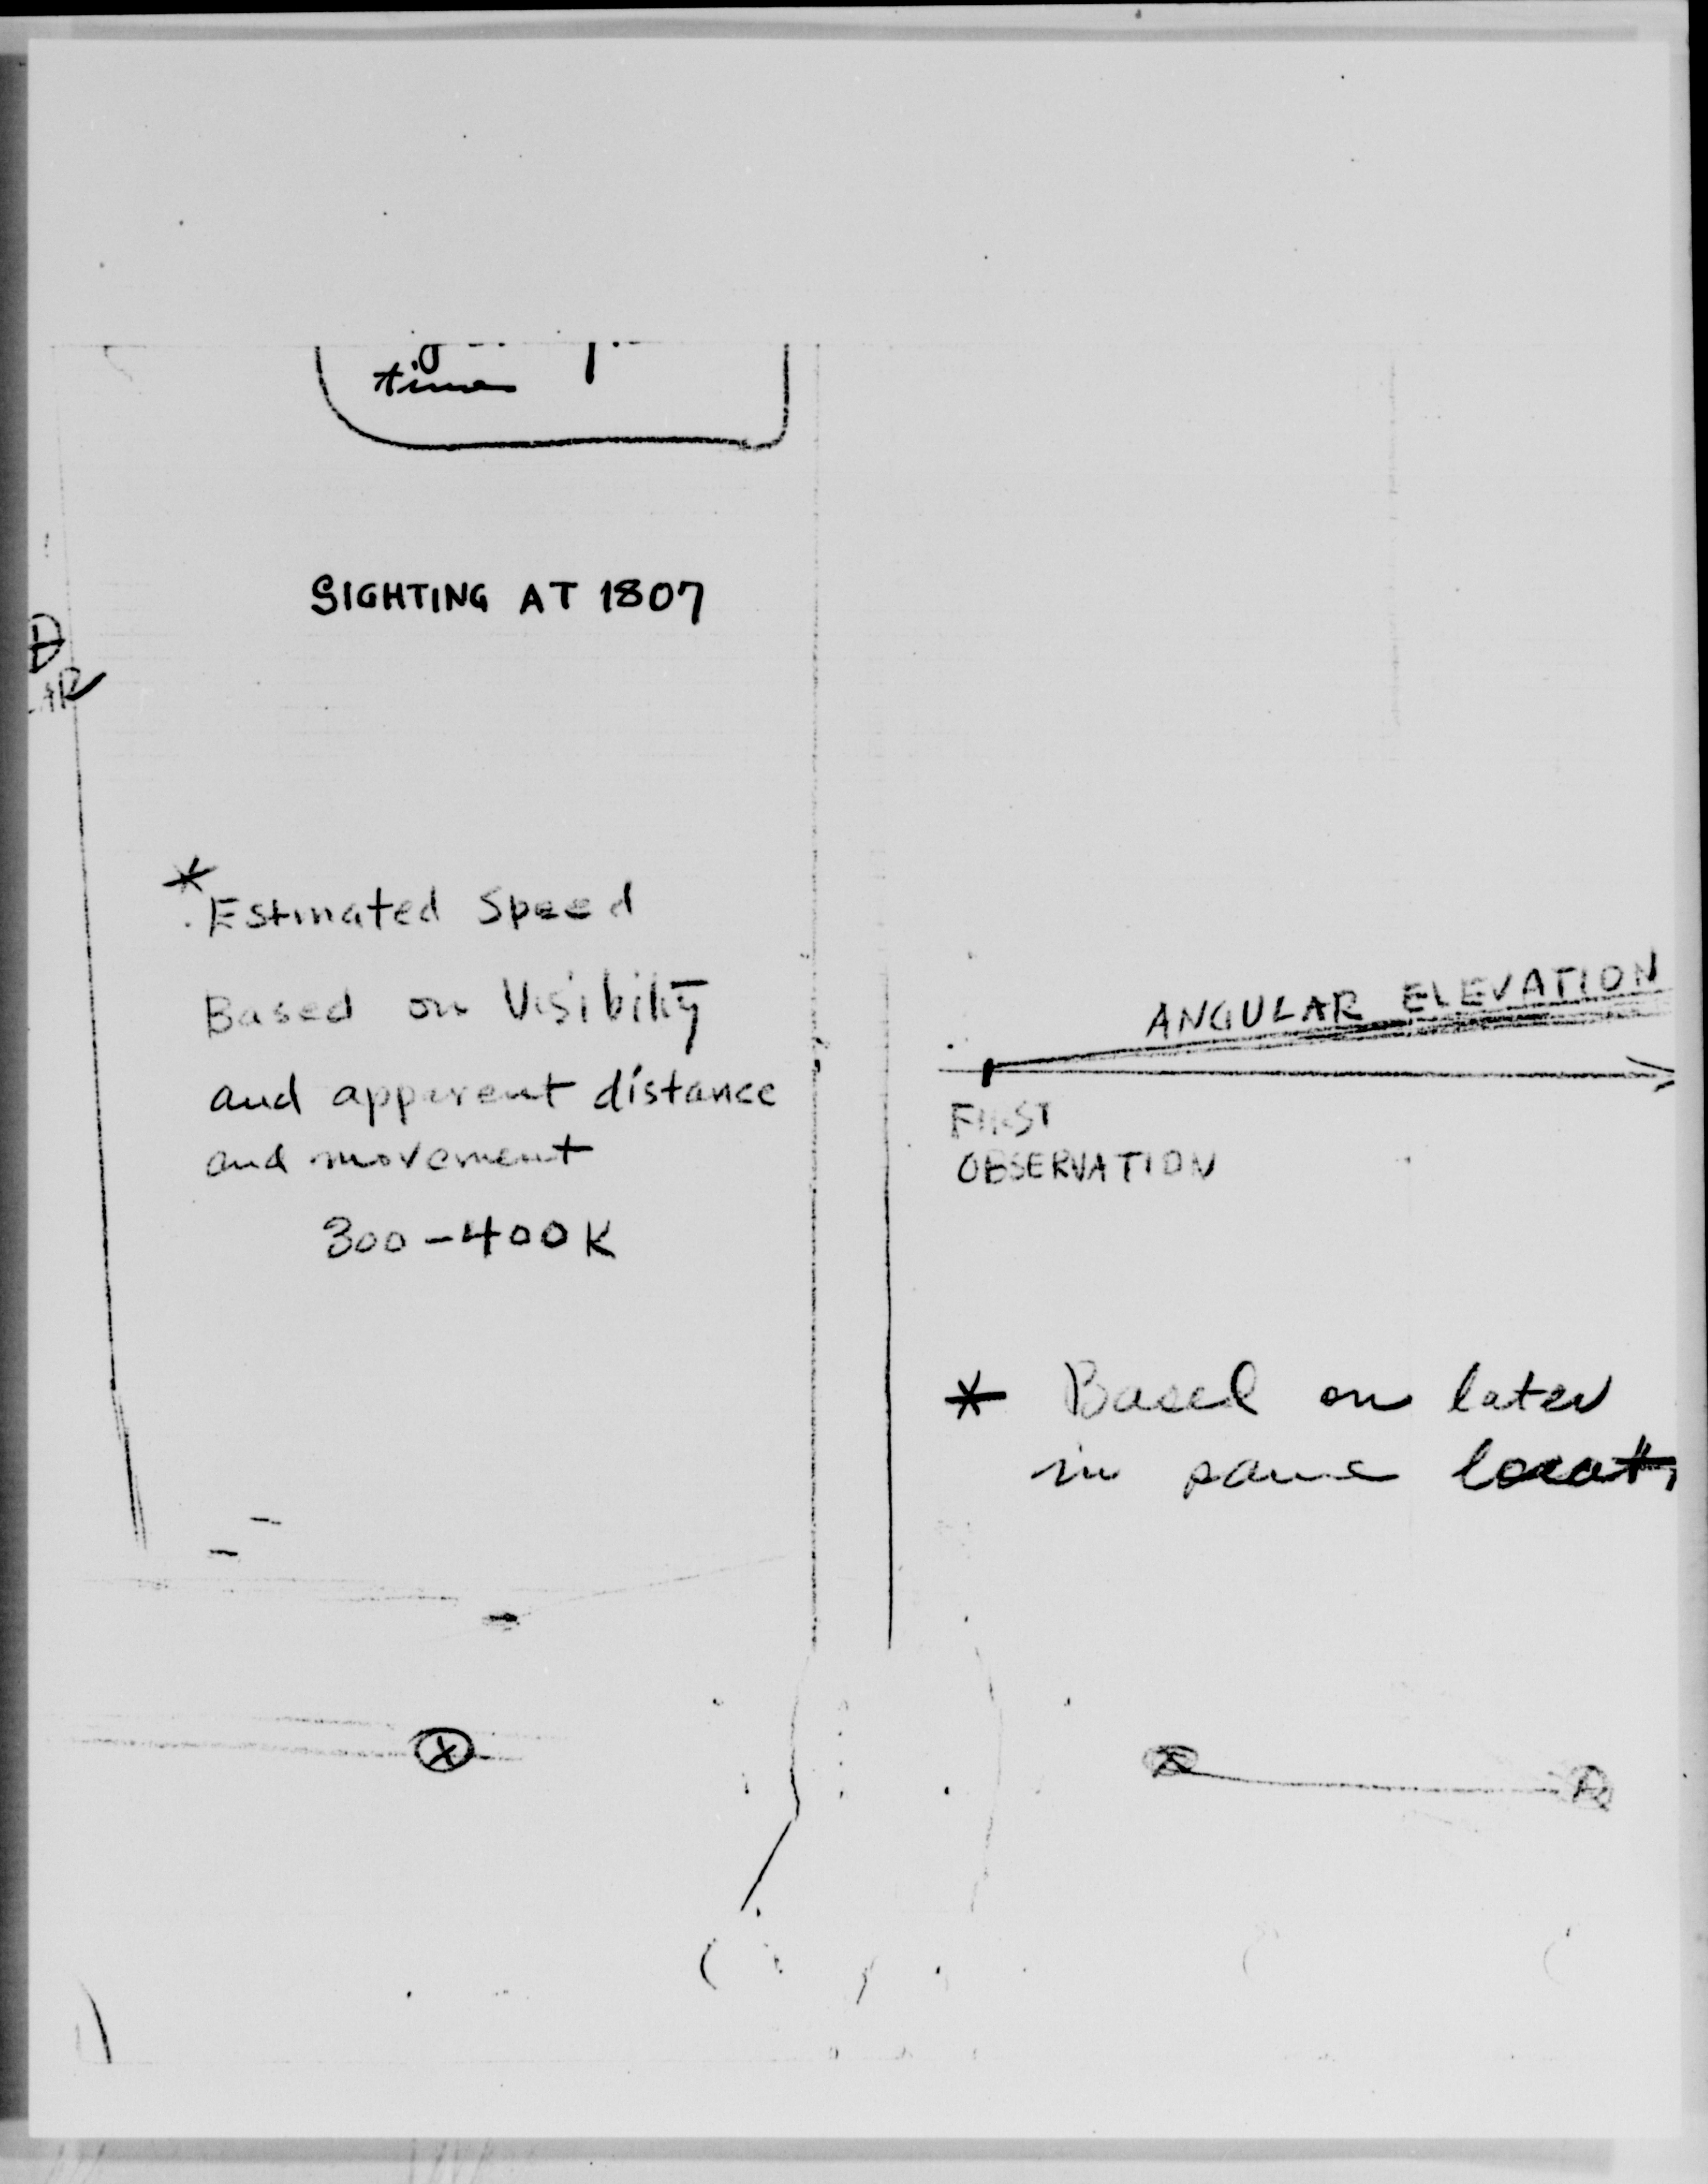 time
SIGHTING AT 1807
* Estimated Speed
Based on Visibility
and apparent distance
and movement
300-400K
ANGULAR ELEVATION
FIRST
OBSERVATION
* Based on later
in same locati